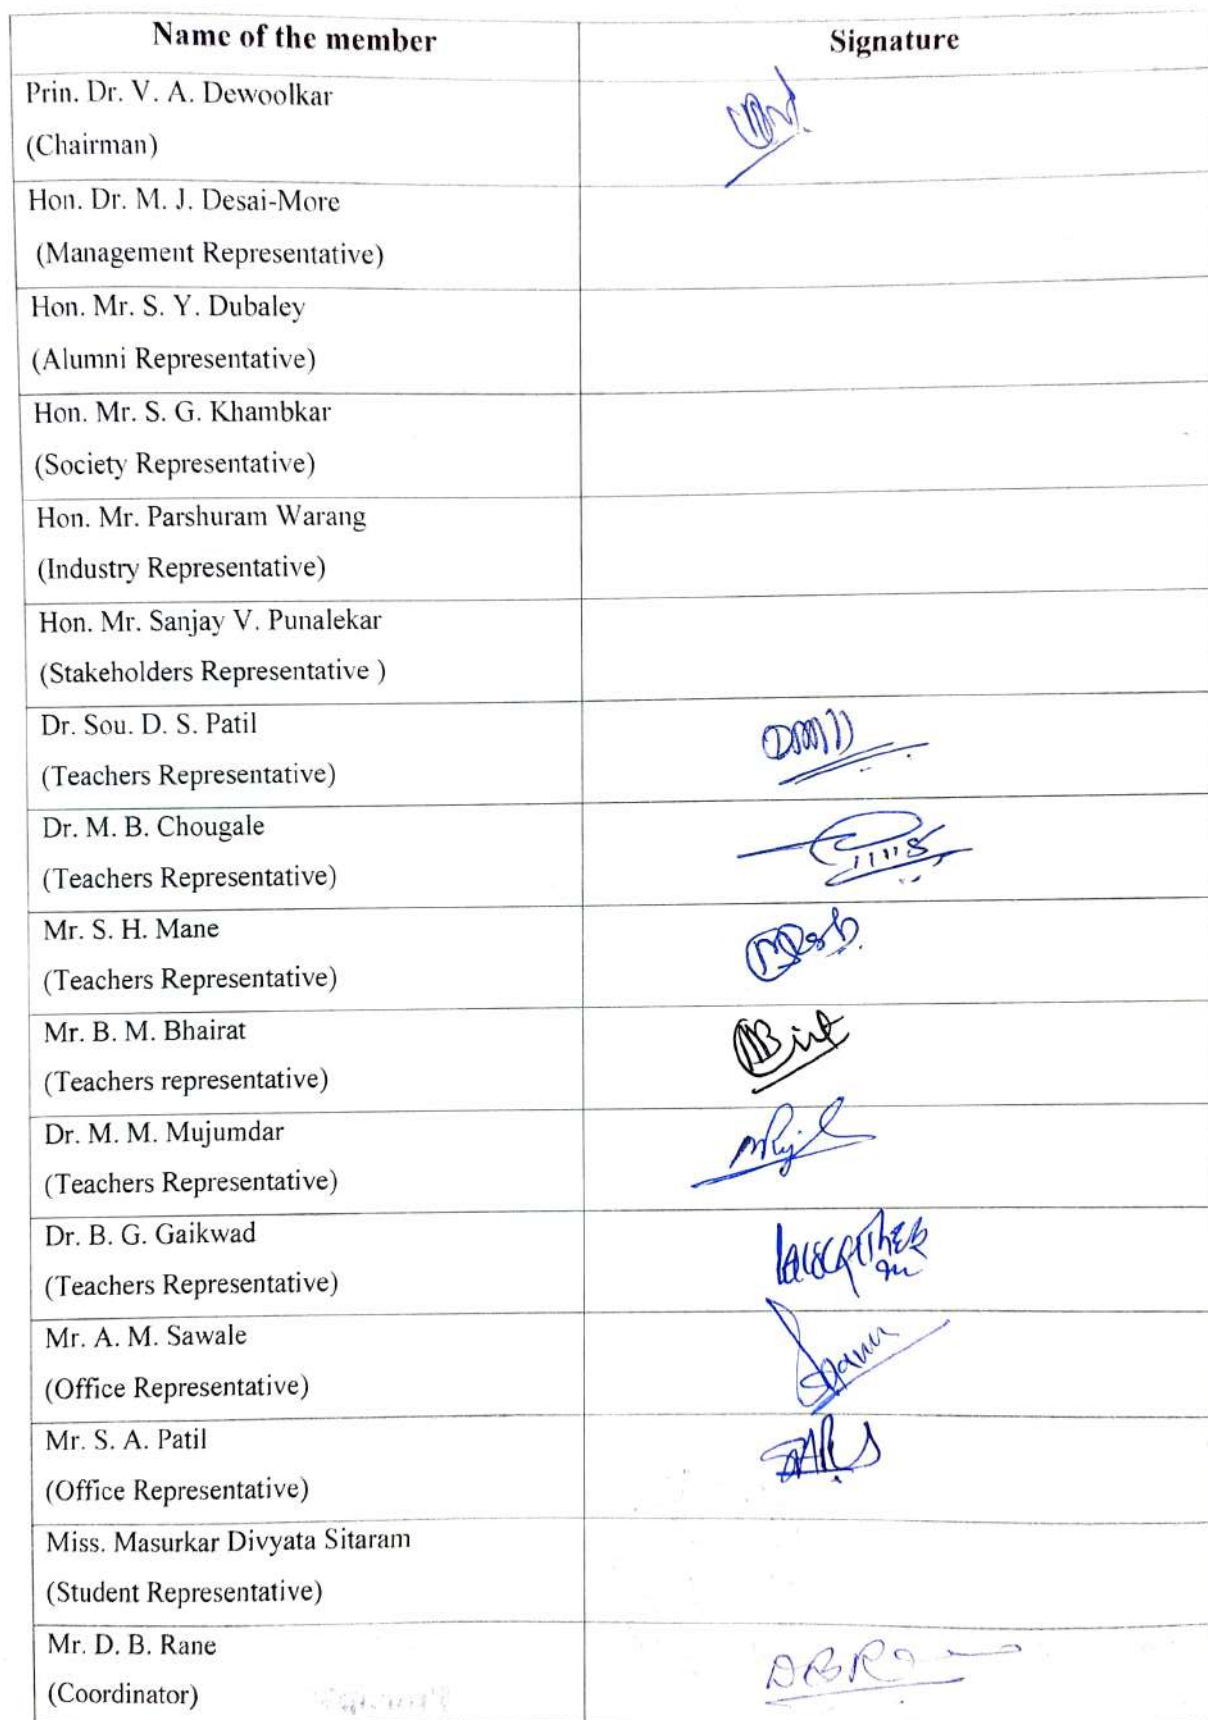 Name of the member Signature
Prin. Dr. V. A. Dewoolkar
(Chairman)
Hon. Dr. M. J. Desai-More
(Management Representative)
Hon. Mr. S. Y. Dubaley
(Alumni Representative)
Hon. Mr. S. G. Khambkar
(Society Representative)
Hon. Mr. Parshuram Warang
(Industry Representative)
Hon. Mr. Sanjay V. Punalekar
(Stakeholders Representative )
Dr. Sou. D. S. Patil
(Teachers Representative)
Dr. M. B. Chougale
(Teachers Representative)
Mr. S. H. Mane
(Teachers Representative)
Mr. B. M. Bhairat
(Teachers representative)
Dr. M. M. Mujumdar
(Teachers Representative)
Dr. B. G. Gaikwad
(Teachers Representative)
Mr. A. M. Sawale
(Office Representative)
Mr. S. A. Patil
(Office Representative)
Miss. Masurkar Divyata Sitaram
(Student Representative)
Mr. D. B. Rane
(Coordinator)